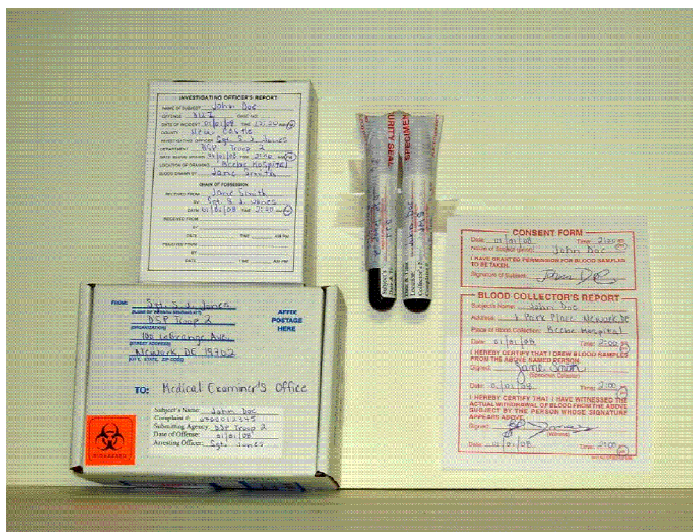 INVESTIGATING OFFICER'S REPORT
NAME OF SUBJECT John Doe
OFFENSE DUI
DATE OF INCIDENT 01/01/08 TIME
COUNTY New Castle
INVESTIGATING OFFICER Sgt. S. J. Jones
DEPARTMENT DSP Troop 2
01/01/08 TIME 2:00
LOCATION OF DRAWING Beebe Hospital
BLOOD DRAWN BY Jane Smith
CHAIN OF POSSESSION
RECEIVED FROM Jane Smith
BY Sgt. S. J. Jones
DATE 01/01/08 TIME 2:20
RECEIVED FROM
BY
DATE TIME AM PM
RECEIVED FROM
BY
DATE TIME AM PM
FROM: Sgt. S. J. Jones
DSP Troop 2
(ORGANIZATION)
100 LaGrange Ave.
(STREET ADDRESS)
Newark, DE 19702
(CITY, STATE, ZIP CODE)
AFFIX
POSTAGE
HERE
TO: Medical Examiner's Office
Subject's Name: John Doe
Complaint #:
Submitting Agency: DSP Troop 2
Date of Offense: 01/01/08
Arresting Officer: Sgt. Jones
BIOHAZARD
CONSENT FORM
Date: 01/01/08 Time: 2:00
Name of Subject John Doe
I HAVE GRANTED PERMISSION FOR BLOOD SAMPLES
TO BE TAKEN.
Signature of Subject John Doe
BLOOD COLLECTOR'S REPORT
Subject's Name: John Doe
Address: 1 Park Place Newark, DE
Place of Blood Collection: Beebe Hospital
Date: 01/01/08 Time: 2:00
I HEREBY CERTIFY THAT I DREW BLOOD SAMPLES
FROM THE ABOVE NAMED PERSON.
Signed: Jane Smith
Date: 01/01/08 Time: 2:00
I HEREBY CERTIFY THAT I HAVE WITNESSED THE
ACTUAL WITHDRAWAL OF BLOOD FROM THE ABOVE
SUBJECT BY THE PERSON WHOSE SIGNATURE
APPEARS ABOVE.
Signed:
(Witness)
Date: 01/01/08 Time: 2:00